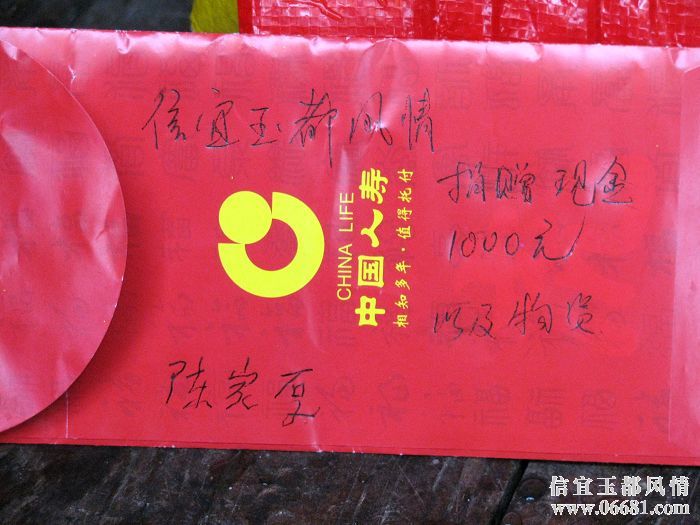 信宜玉都风情
捐赠现金
1000元
以及物资
陈家厦
CHINA LIFE
中国人寿
相知多年·值得托付
信宜玉都风情
www.06681.com